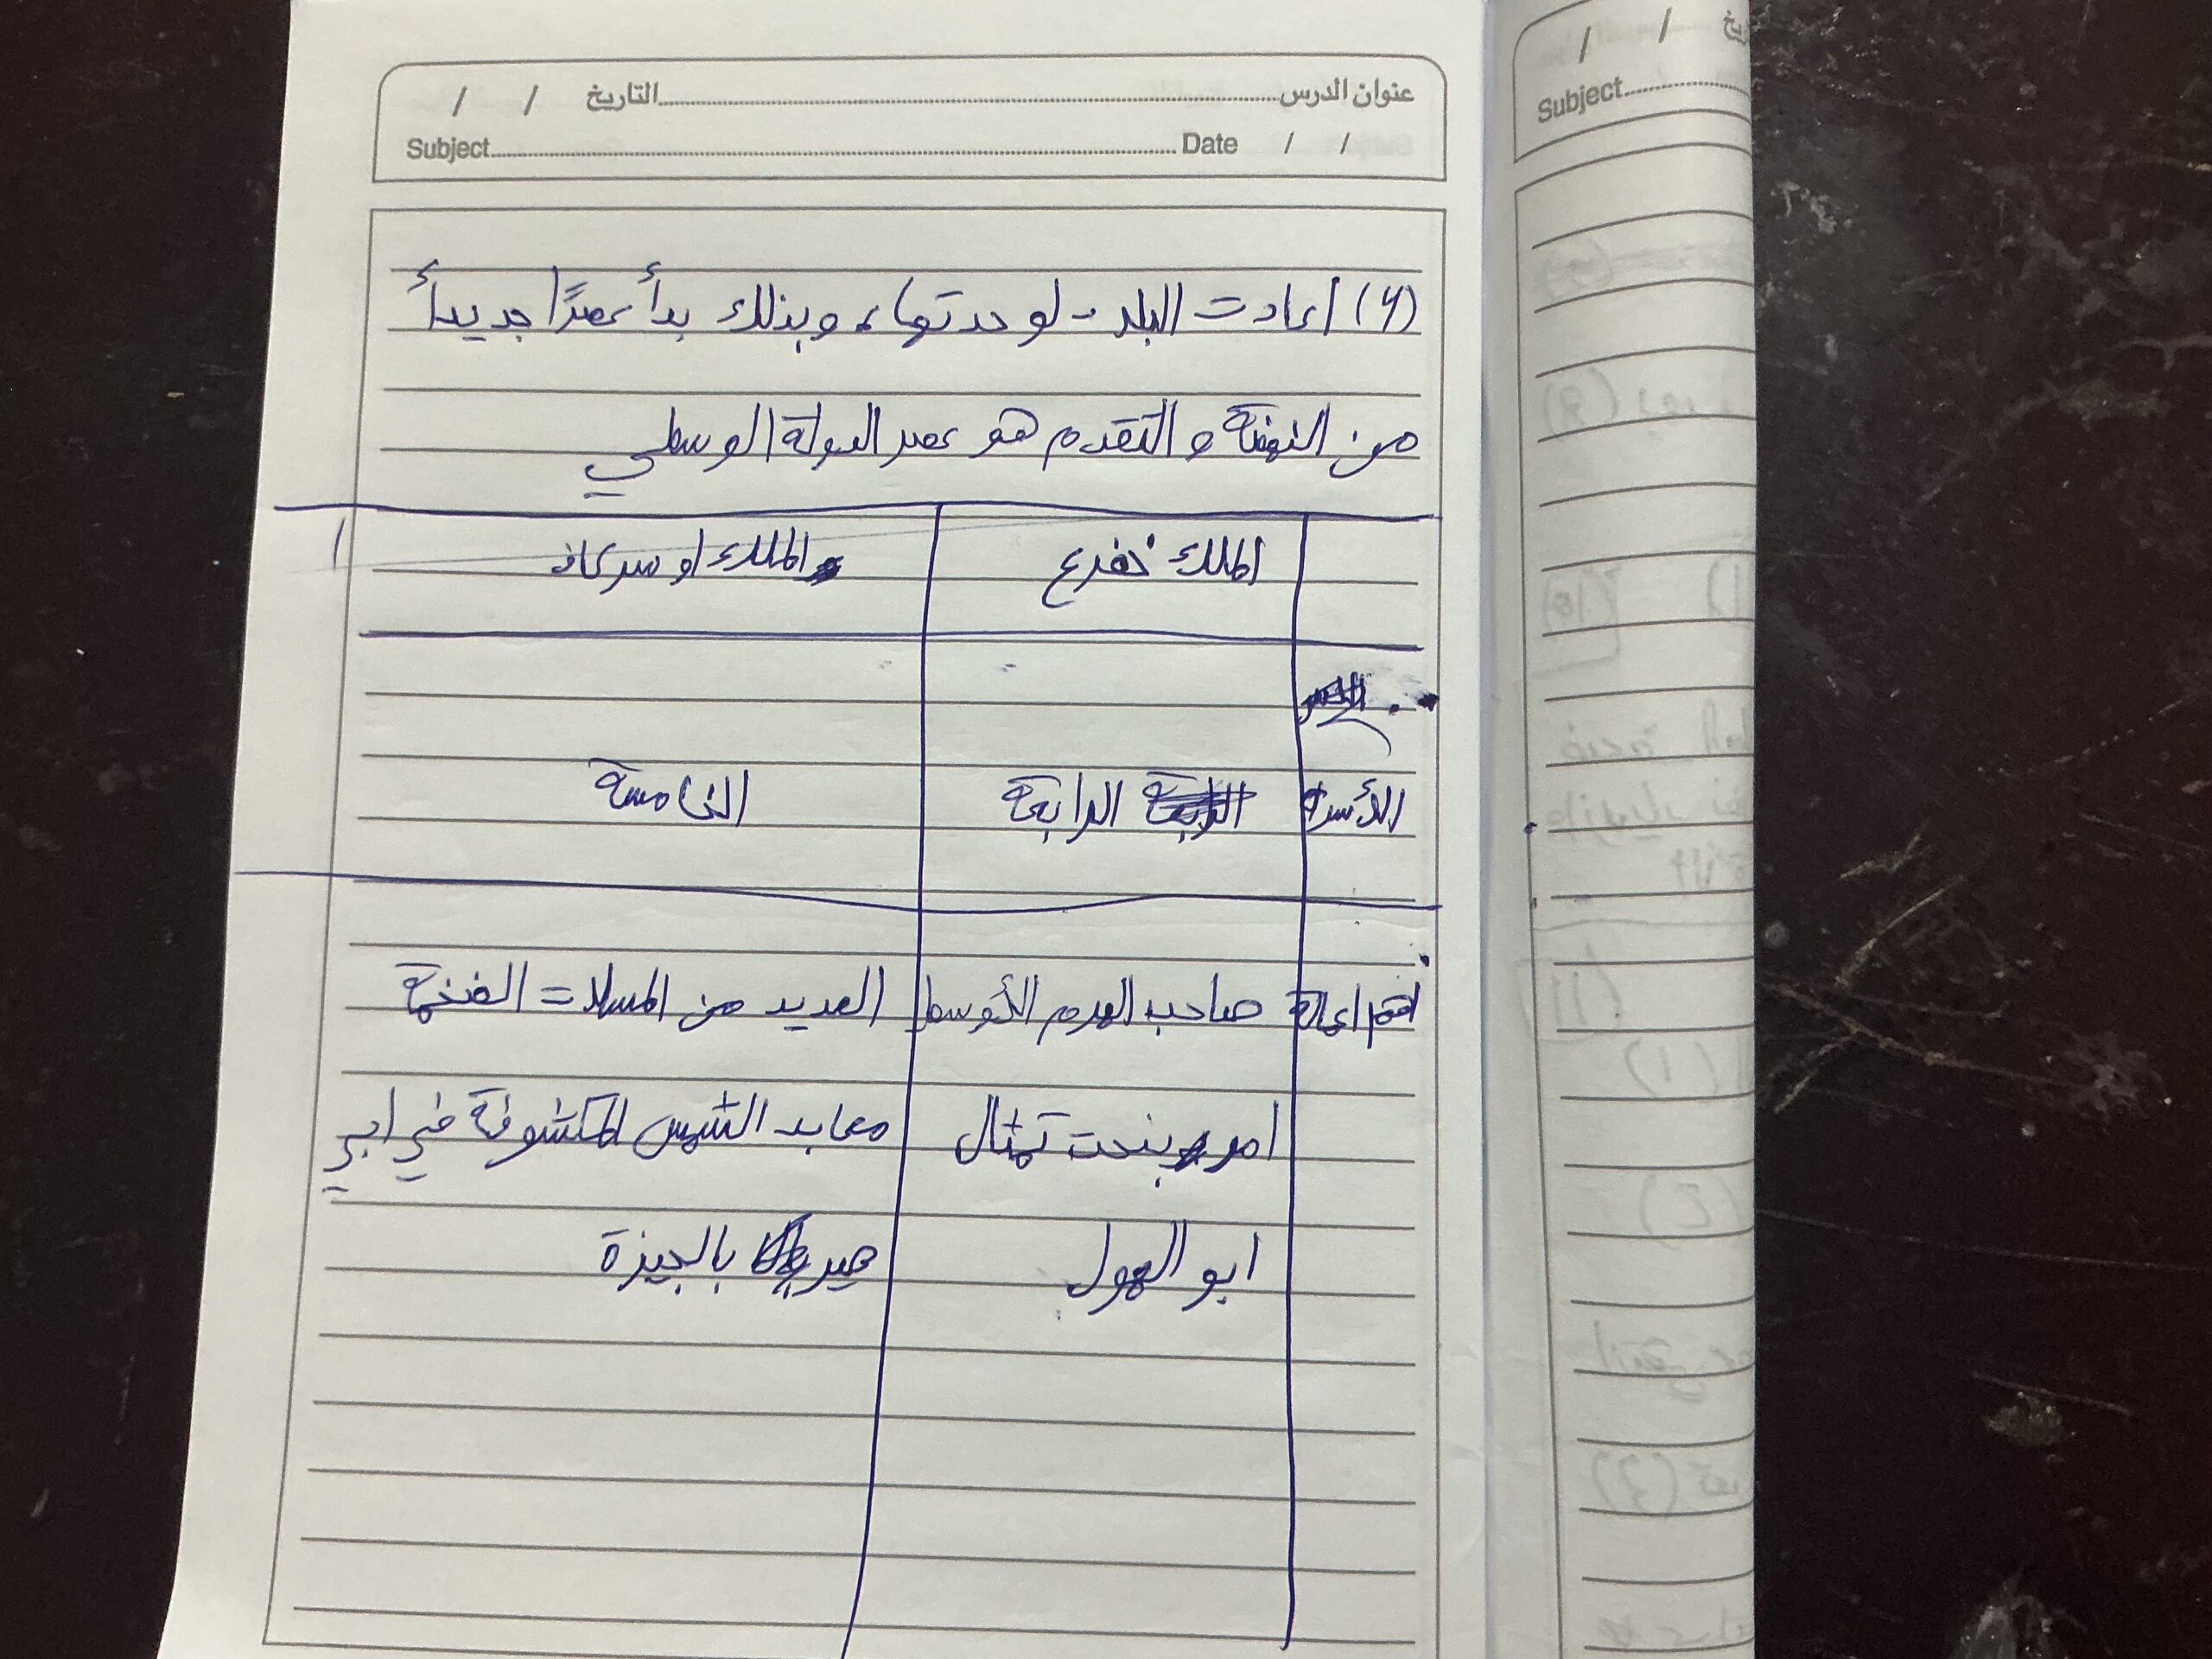 عنوان الدرس التاريخ / /
Subject Date / /
(٢) اعادت البلد لوحدتها، وبذلك بدأ عصرًا جديدأ
من النهضة و التقدم هو عصر الدولة الوسطي
الملك خفرع الملك اوسركاف
الأسرة الرابعة الخامسة
اهم اعماله صاحب الهرم الأوسط العديد من المسلات الضخمة
امر بنحت تمثال معابد الشمس المكشوفة في ابي
ابو الهول صير بالجيزة
التاريخ / /
Subject